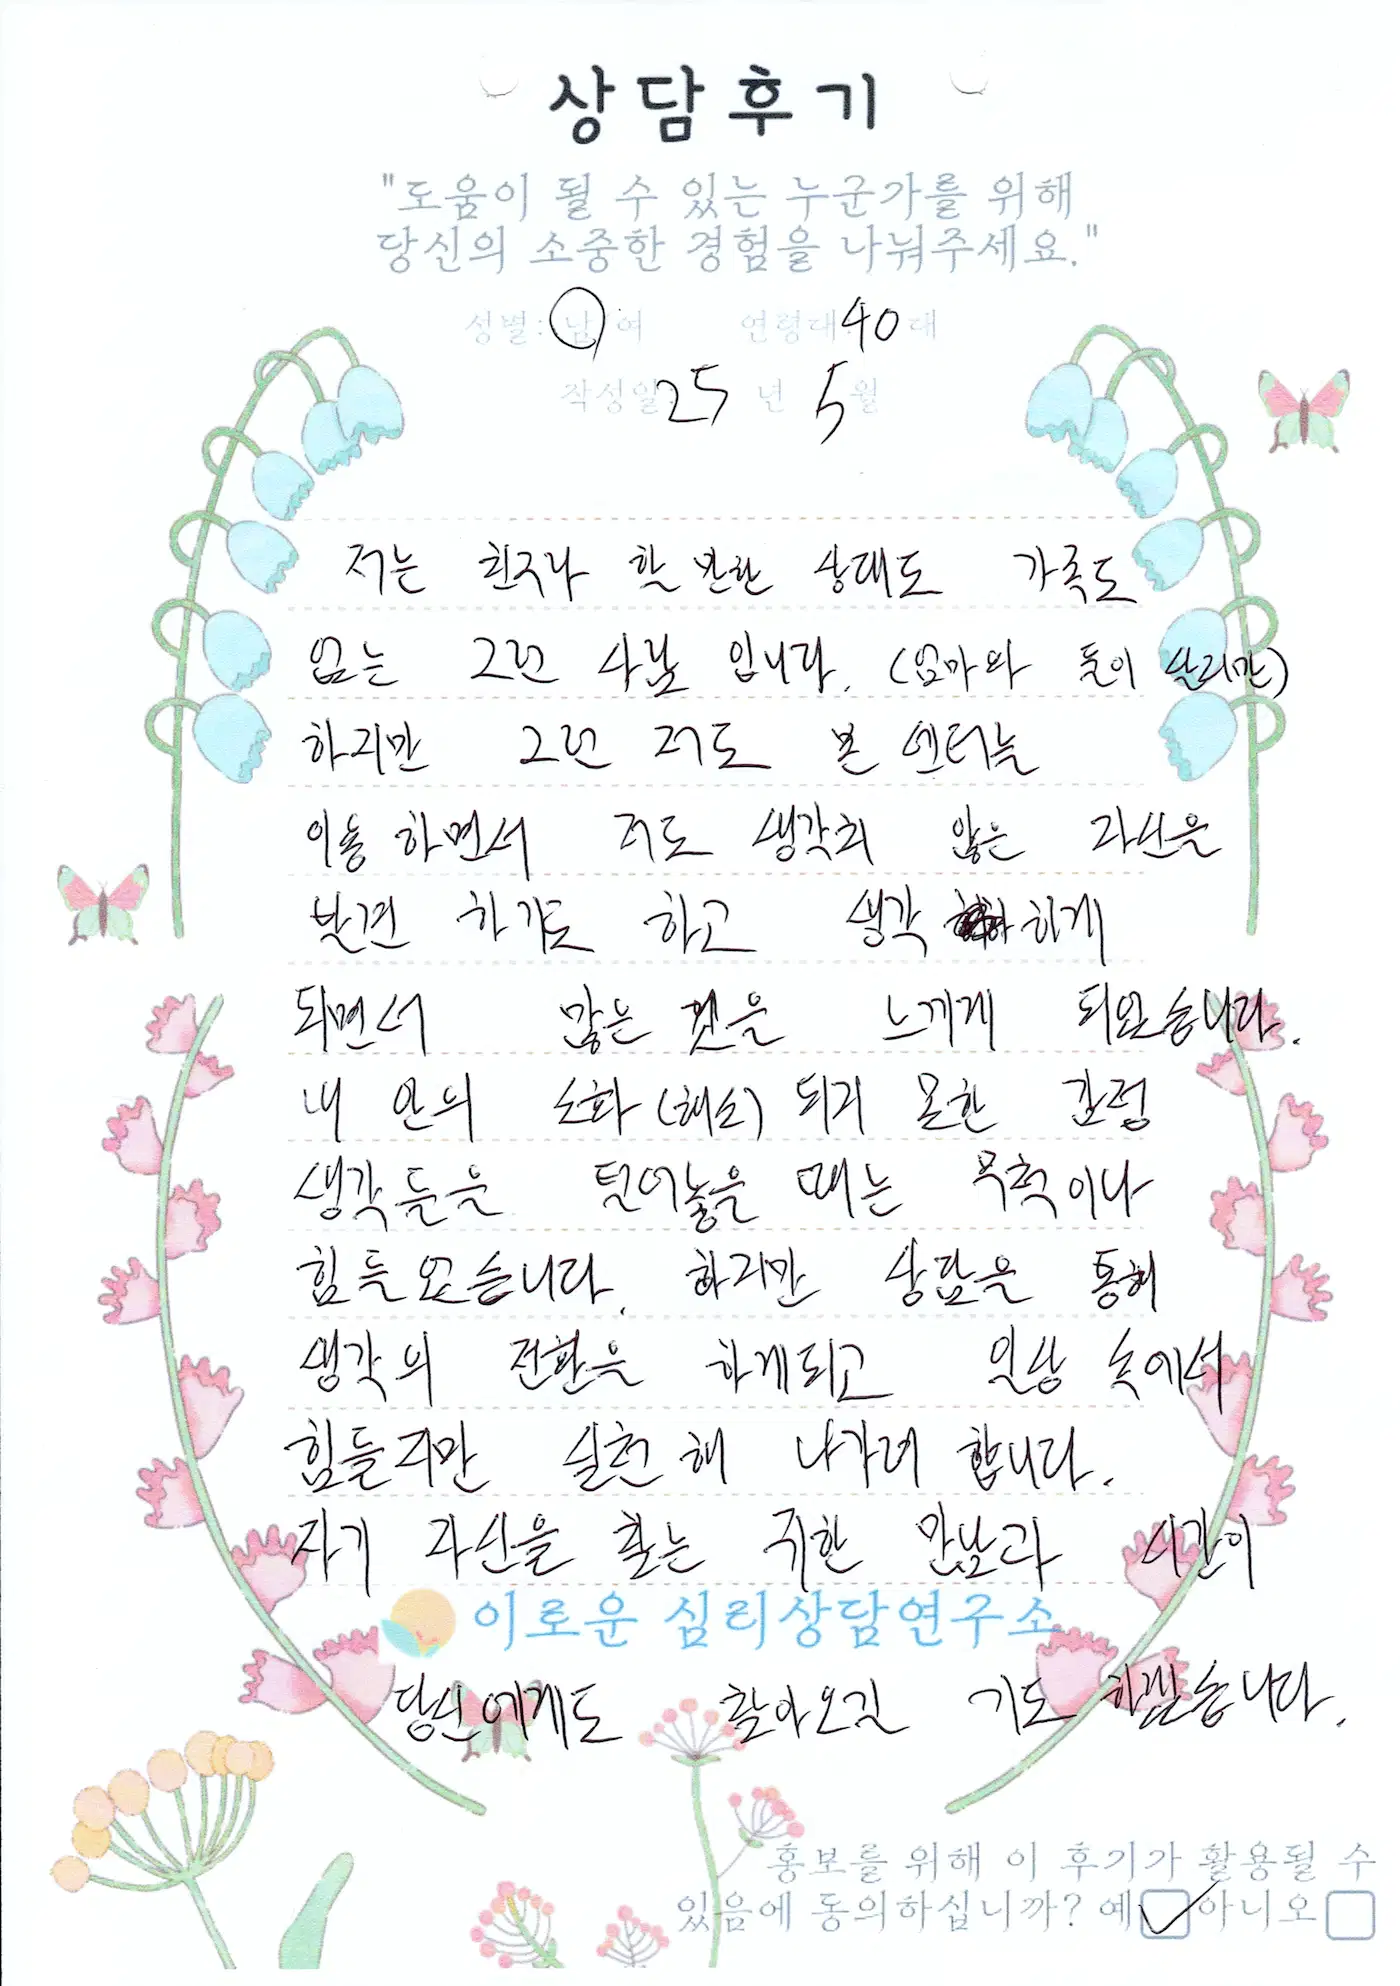 상담후기
"도움이 될 수 있는 누군가를 위해
당신의 소중한 경험을 나눠주세요."
성별: 남 여 연령대: 40 대
작성일: 25 년 5 월
저는 친구나 할 만한 상대도 가족도
없는 그런 사람 입니다. (엄마와 둘이 살지만)
하지만 그런 저도 본 센터늘
이용 하면서 저도 생각치 않은 자신을
발견 하기도 하고 생각 하게
되면서 많은 것을 느끼게 되었습니다.
내 안의 소화(해소) 되지 못한 감정
생각들을 털어놓을 때는 무척이나
힘들었습니다. 하지만 상담을 통해
생각의 전환을 하게되고 일상 속에서
힘들지만 실천해 나가려 합니다.
자기 자신을 찾는 귀한 만남과 시간이
이로운 심리상담연구소
당신에게도 찾아오길 기도 하겠습니다.
홍보를 위해 이 후기가 활용될 수
있음에 동의하십니까? 예 아니오